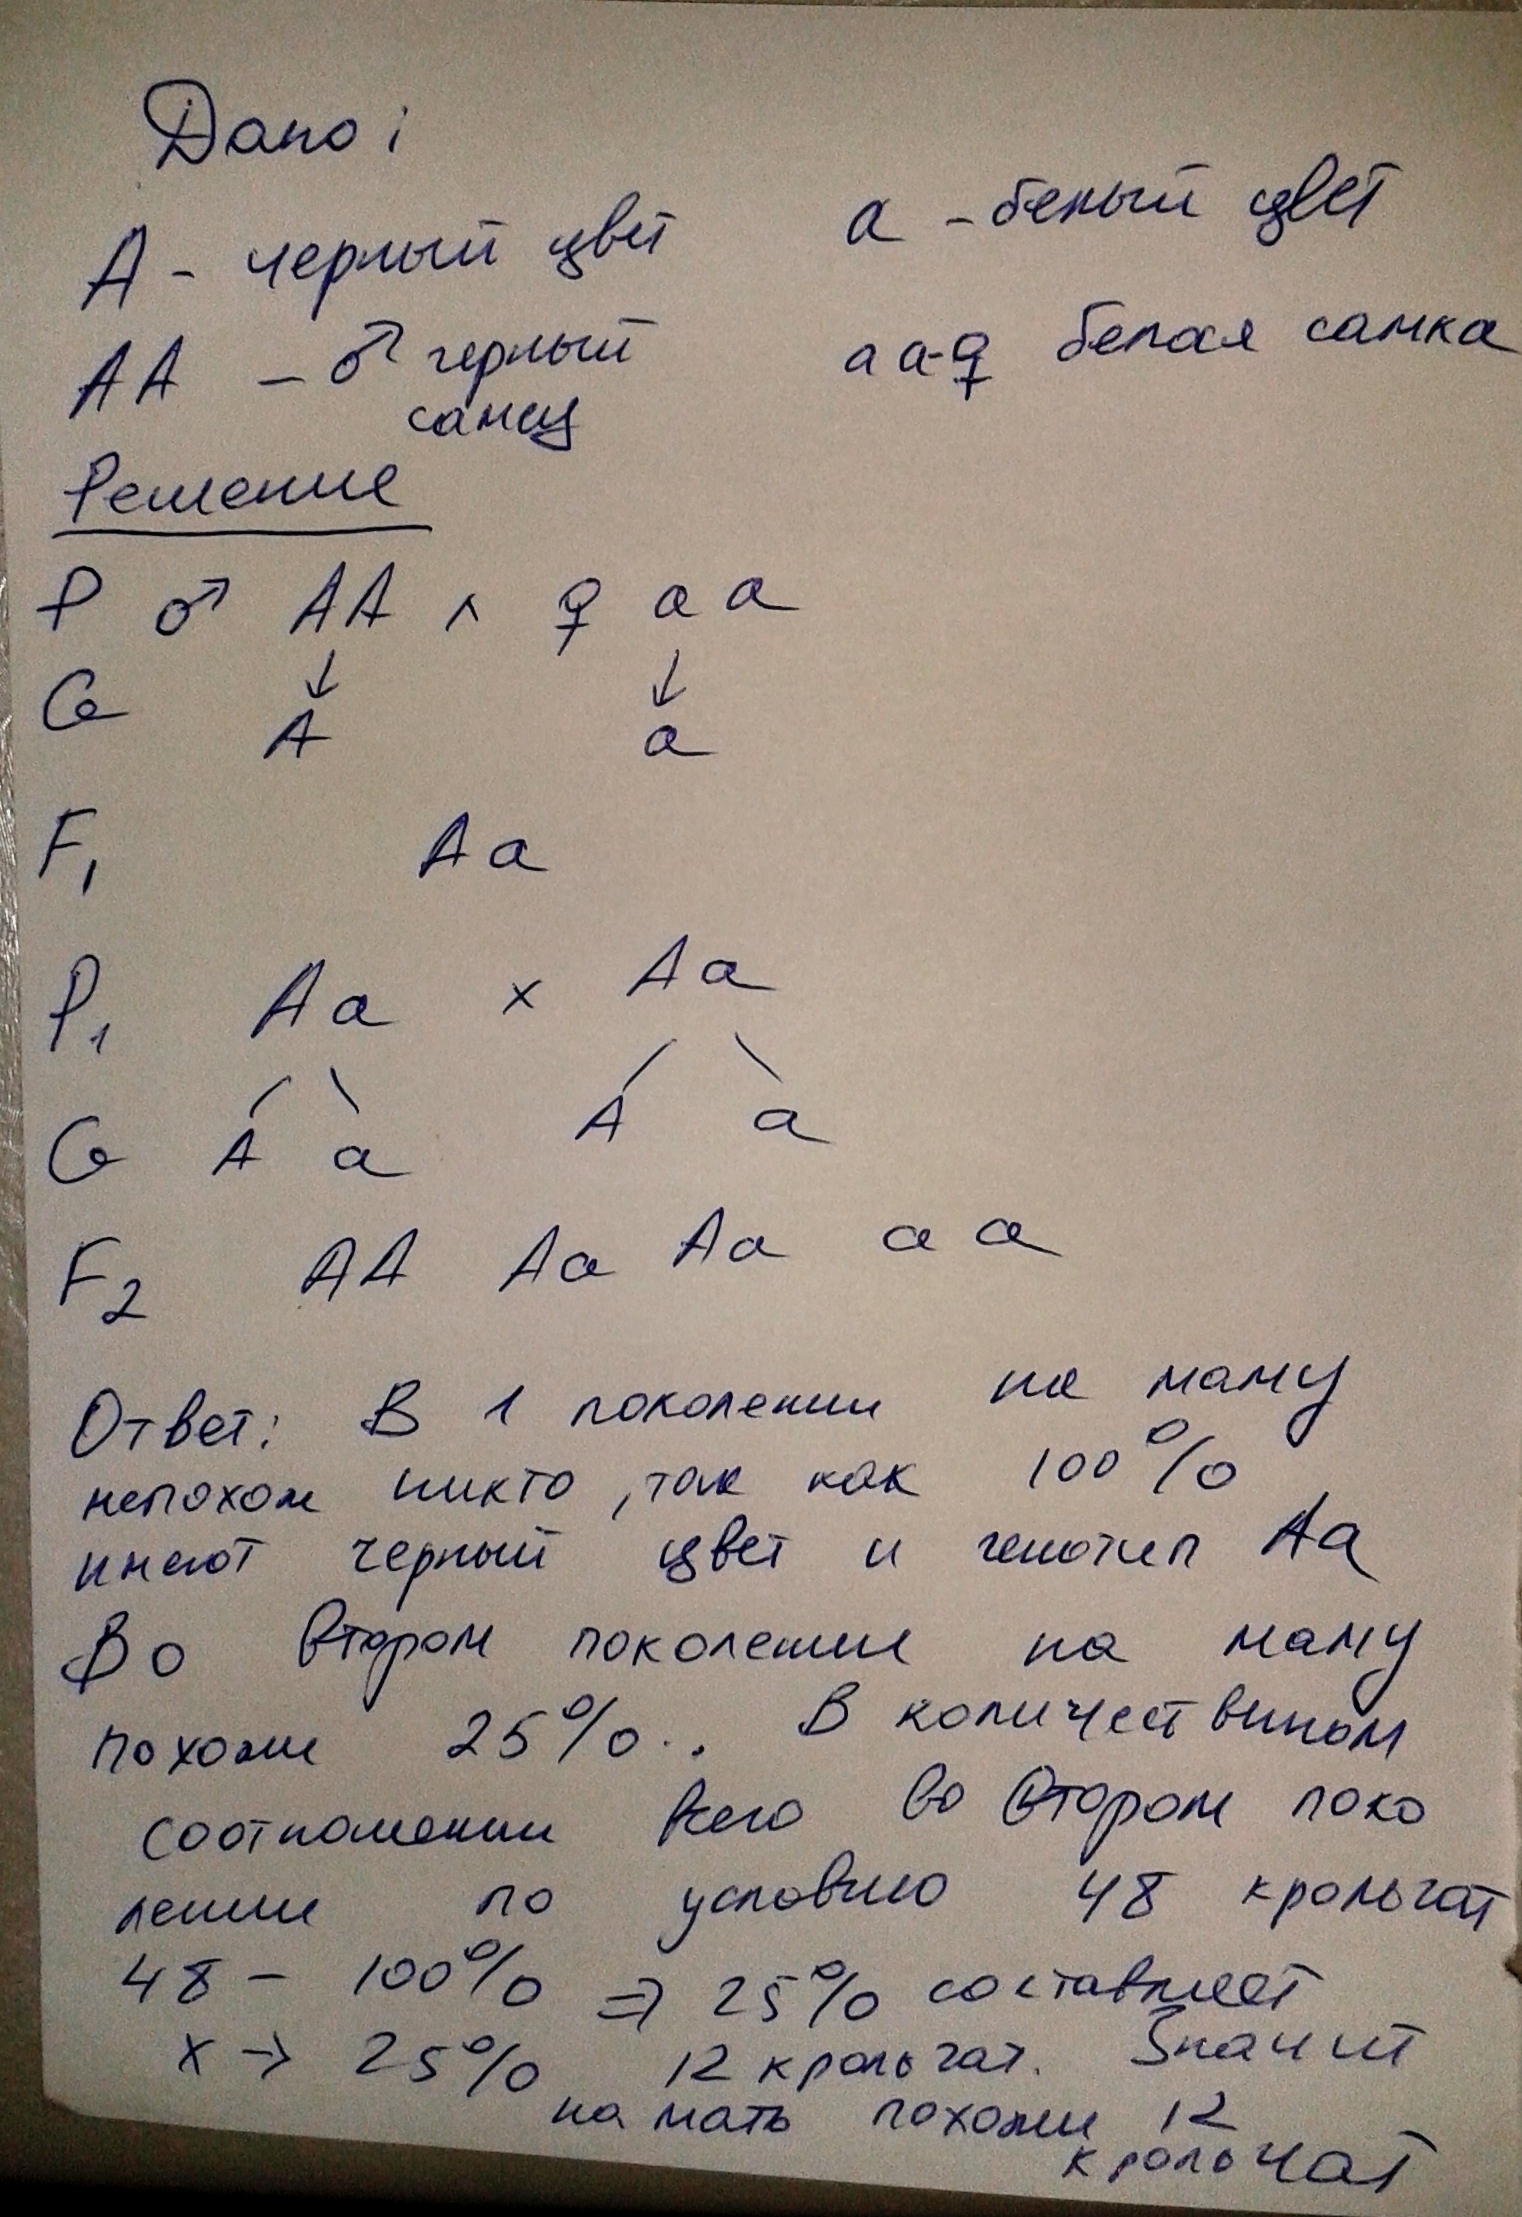 Дано:
А - черный цвет а - белый цвет
АА - ♂ черный аа-♀ белая самка
самец
Решение
Р ♂ АА × ♀ аа
↓ ↓
G А а
F1 Аа
Р1 Аа × Аа
G А а А а
F2 АА Аа Аа аа
Ответ: В 1 поколении на маму
непохож никто, так как 100%
имеют черный цвет и генотип Аа
Во втором поколении на маму
похожи 25%.. В количествином
соотношении всего во втором поко
лении по условию 48 крольчат
48 - 100% ⇒ 25% составляет
х → 25% 12 крольчат. Значит
на мать похожи 12
крольчат